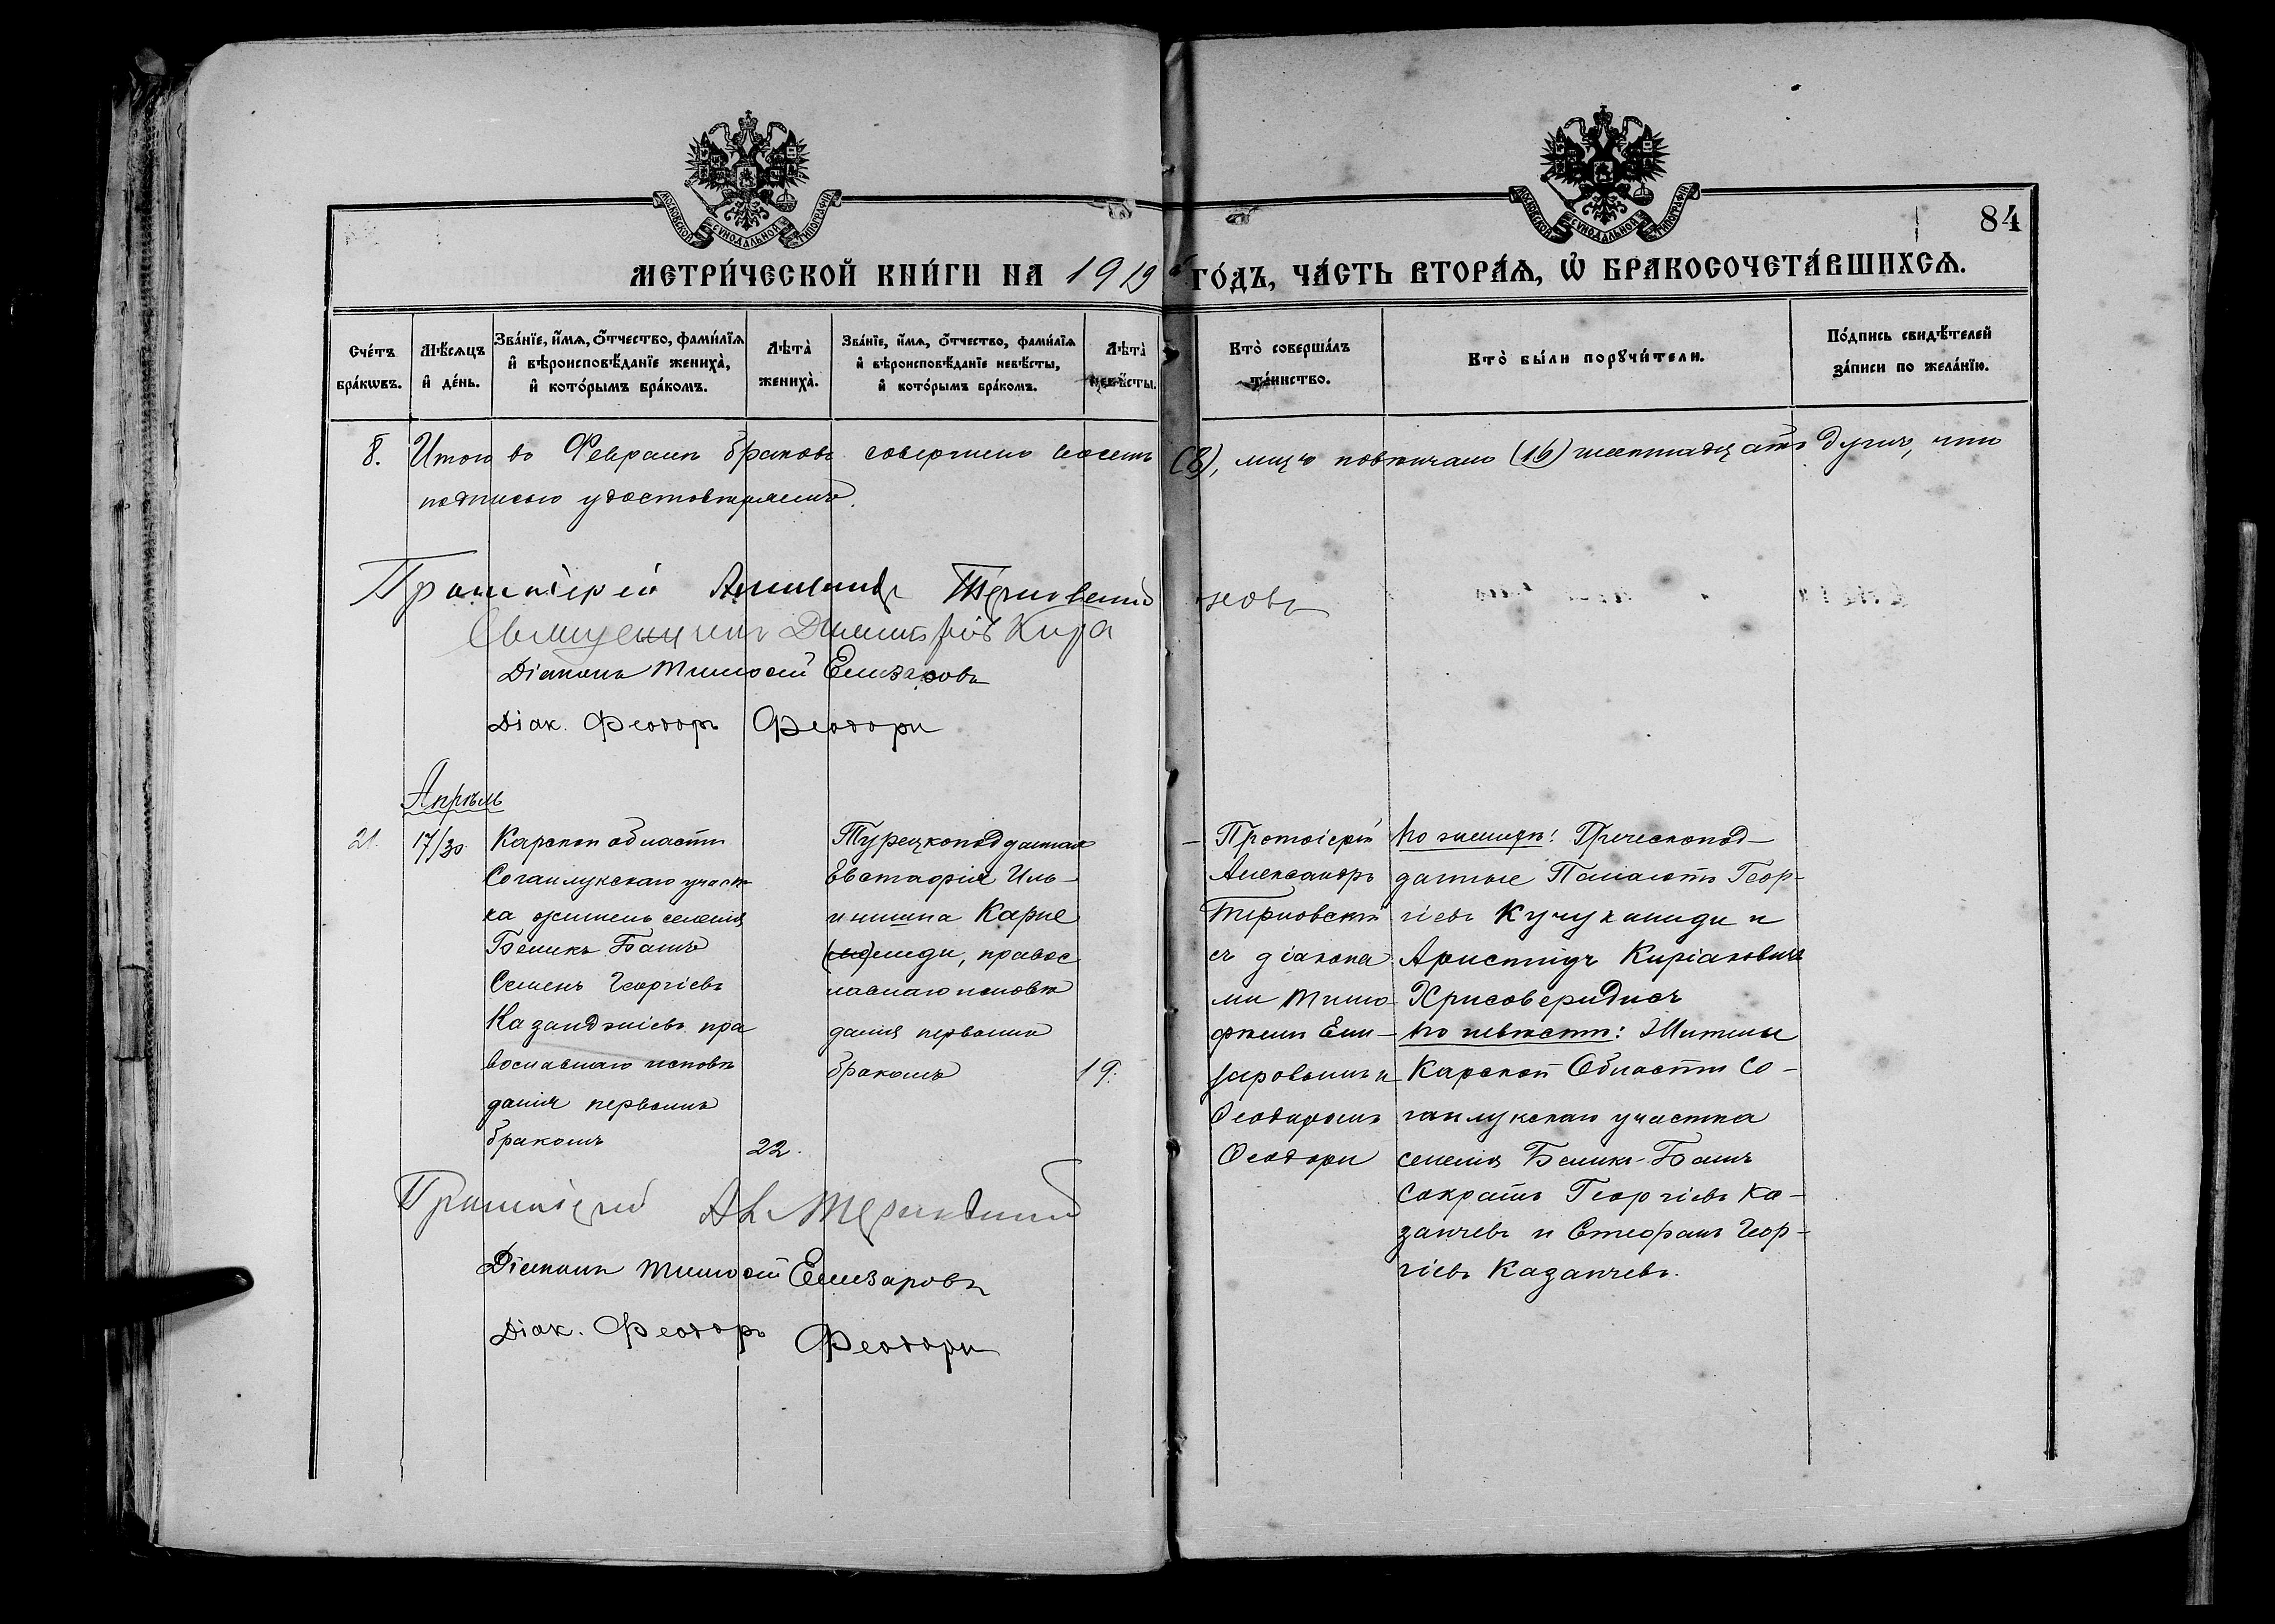 МОСКОВСКОЙ СѴНОДАЛЬНОЙ ТИПОГРАФІИ
МОСКОВСКОЙ СѴНОДАЛЬНОЙ ТИПОГРАФІИ
84
МЕТРИ́ЧЕСКОЙ КНИ́ГИ НА 1919 ГО́ДЪ, ЧА́СТЬ ВТОРА́Ѧ, Ѽ БРАКОСОЧЕТА́ВШИХСѦ.
Сче́тъ бра́кѡвъ.
Мѣ́сѧцъ и҆ де́нь.
Зва́нїе, и҆́мѧ, ѻ҆́тчество, фами́лїѧ и҆ вѣроисповѣ́данїе жениха̀, и҆ кото́рымъ бра́комъ.
Лѣта̀ жениха̀.
Зва́нїе, и҆́мѧ, ѻ҆́тчество, фами́лїѧ и҆ вѣроисповѣ́данїе невѣ́сты, и҆ кото́рымъ бра́комъ.
Лѣта̀ невѣ́сты.
Кто̀ соверша́лъ та́инство.
Кто̀ бы́ли порꙋчи́тели.
По́дпись свидѣ́телей за́писи по жела́нїю.
8. Итого во Февралѣ браковъ совершено восемь (8), лицъ повѣнчано (16) шестнадцать душъ, что
подписью удостовѣряемъ.
Протоіерей Александръ Терновский
Священникъ Димитрій Кира
новъ
Діаконъ Тимофей Елизаровъ
Діак. Феодоръ Феодори
Апрѣль
21. 17/30
Карской области
Соганлукскаго участ
ка житель селенія
Беликъ Башъ
Семенъ Георгіевъ
Казанджіевъ пра
вославнаго исповѣ
данія первымъ
бракомъ
22.
Турецкоподданная
Евстафія Иль
инишна Карпе
лиди, правос
лавнаго исповѣ
данія первымъ
бракомъ
19.
Протоіерей
Александръ
Терновскій
съ діакона
ми Тимо
фѣемъ Ели
заровымъ и
Феодоромъ
Феодори
По женихѣ: Греческопод-
данные Геор-
гіевъ Кучукиниди и
Аристидъ Киріаковичъ
Хрисоверидисъ
По невѣстѣ: Жители
Карской Области Со-
ганлукскаго участка
селенія Беликъ-Башъ
Сократъ Георгіевъ Ка-
занчевъ и Стефанъ Геор-
гіевъ Казанчевъ.
Протоіерей Ал. Терновский
Діаконъ Тимофей Елизаровъ
Діак. Феодоръ Феодори